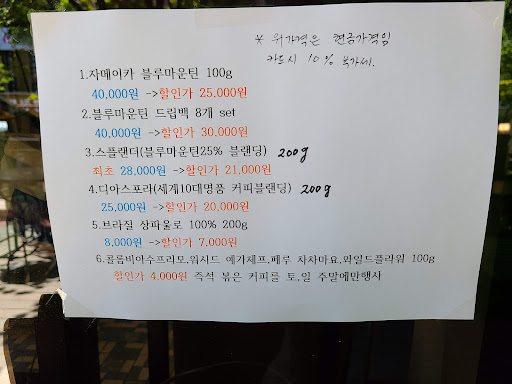 * 위가격은 현금가격임
카드시 10% 부가세.
1.자메이카 블루마운틴 100g
40,000원 ->할인가 25,000원
2.블루마운틴 드립백 8개 set
40,000원 ->할인가 30,000원
3.스플랜더(블루마운틴25% 블랜딩) 200g
최초 28,000원 ->할인가 21,000원
4.디아스포라(세계10대명품 커피블랜딩) 200g
25,000원 ->할인가 20,000원
5.브라질 상파울로 100% 200g
8,000원 ->할인가 7,000원
6.콜롬비아수프리모,워시드 예가체프,페루 차차마요,와일드플라워 100g
할인가 4,000원 즉석 볶은 커피를 토,일 주말에만행사